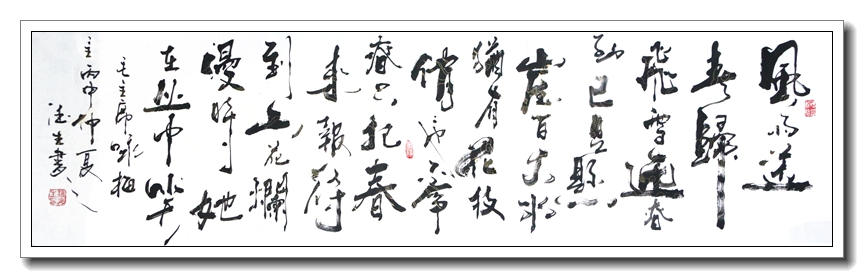 風雨送
春歸
飛雪迎春
到已是懸
崖百丈冰
猶有花枝
俏也不爭
春只把春
来報待
到山花爛
漫時她
在丛中笑
毛主席咏梅
丙申仲夏
生書